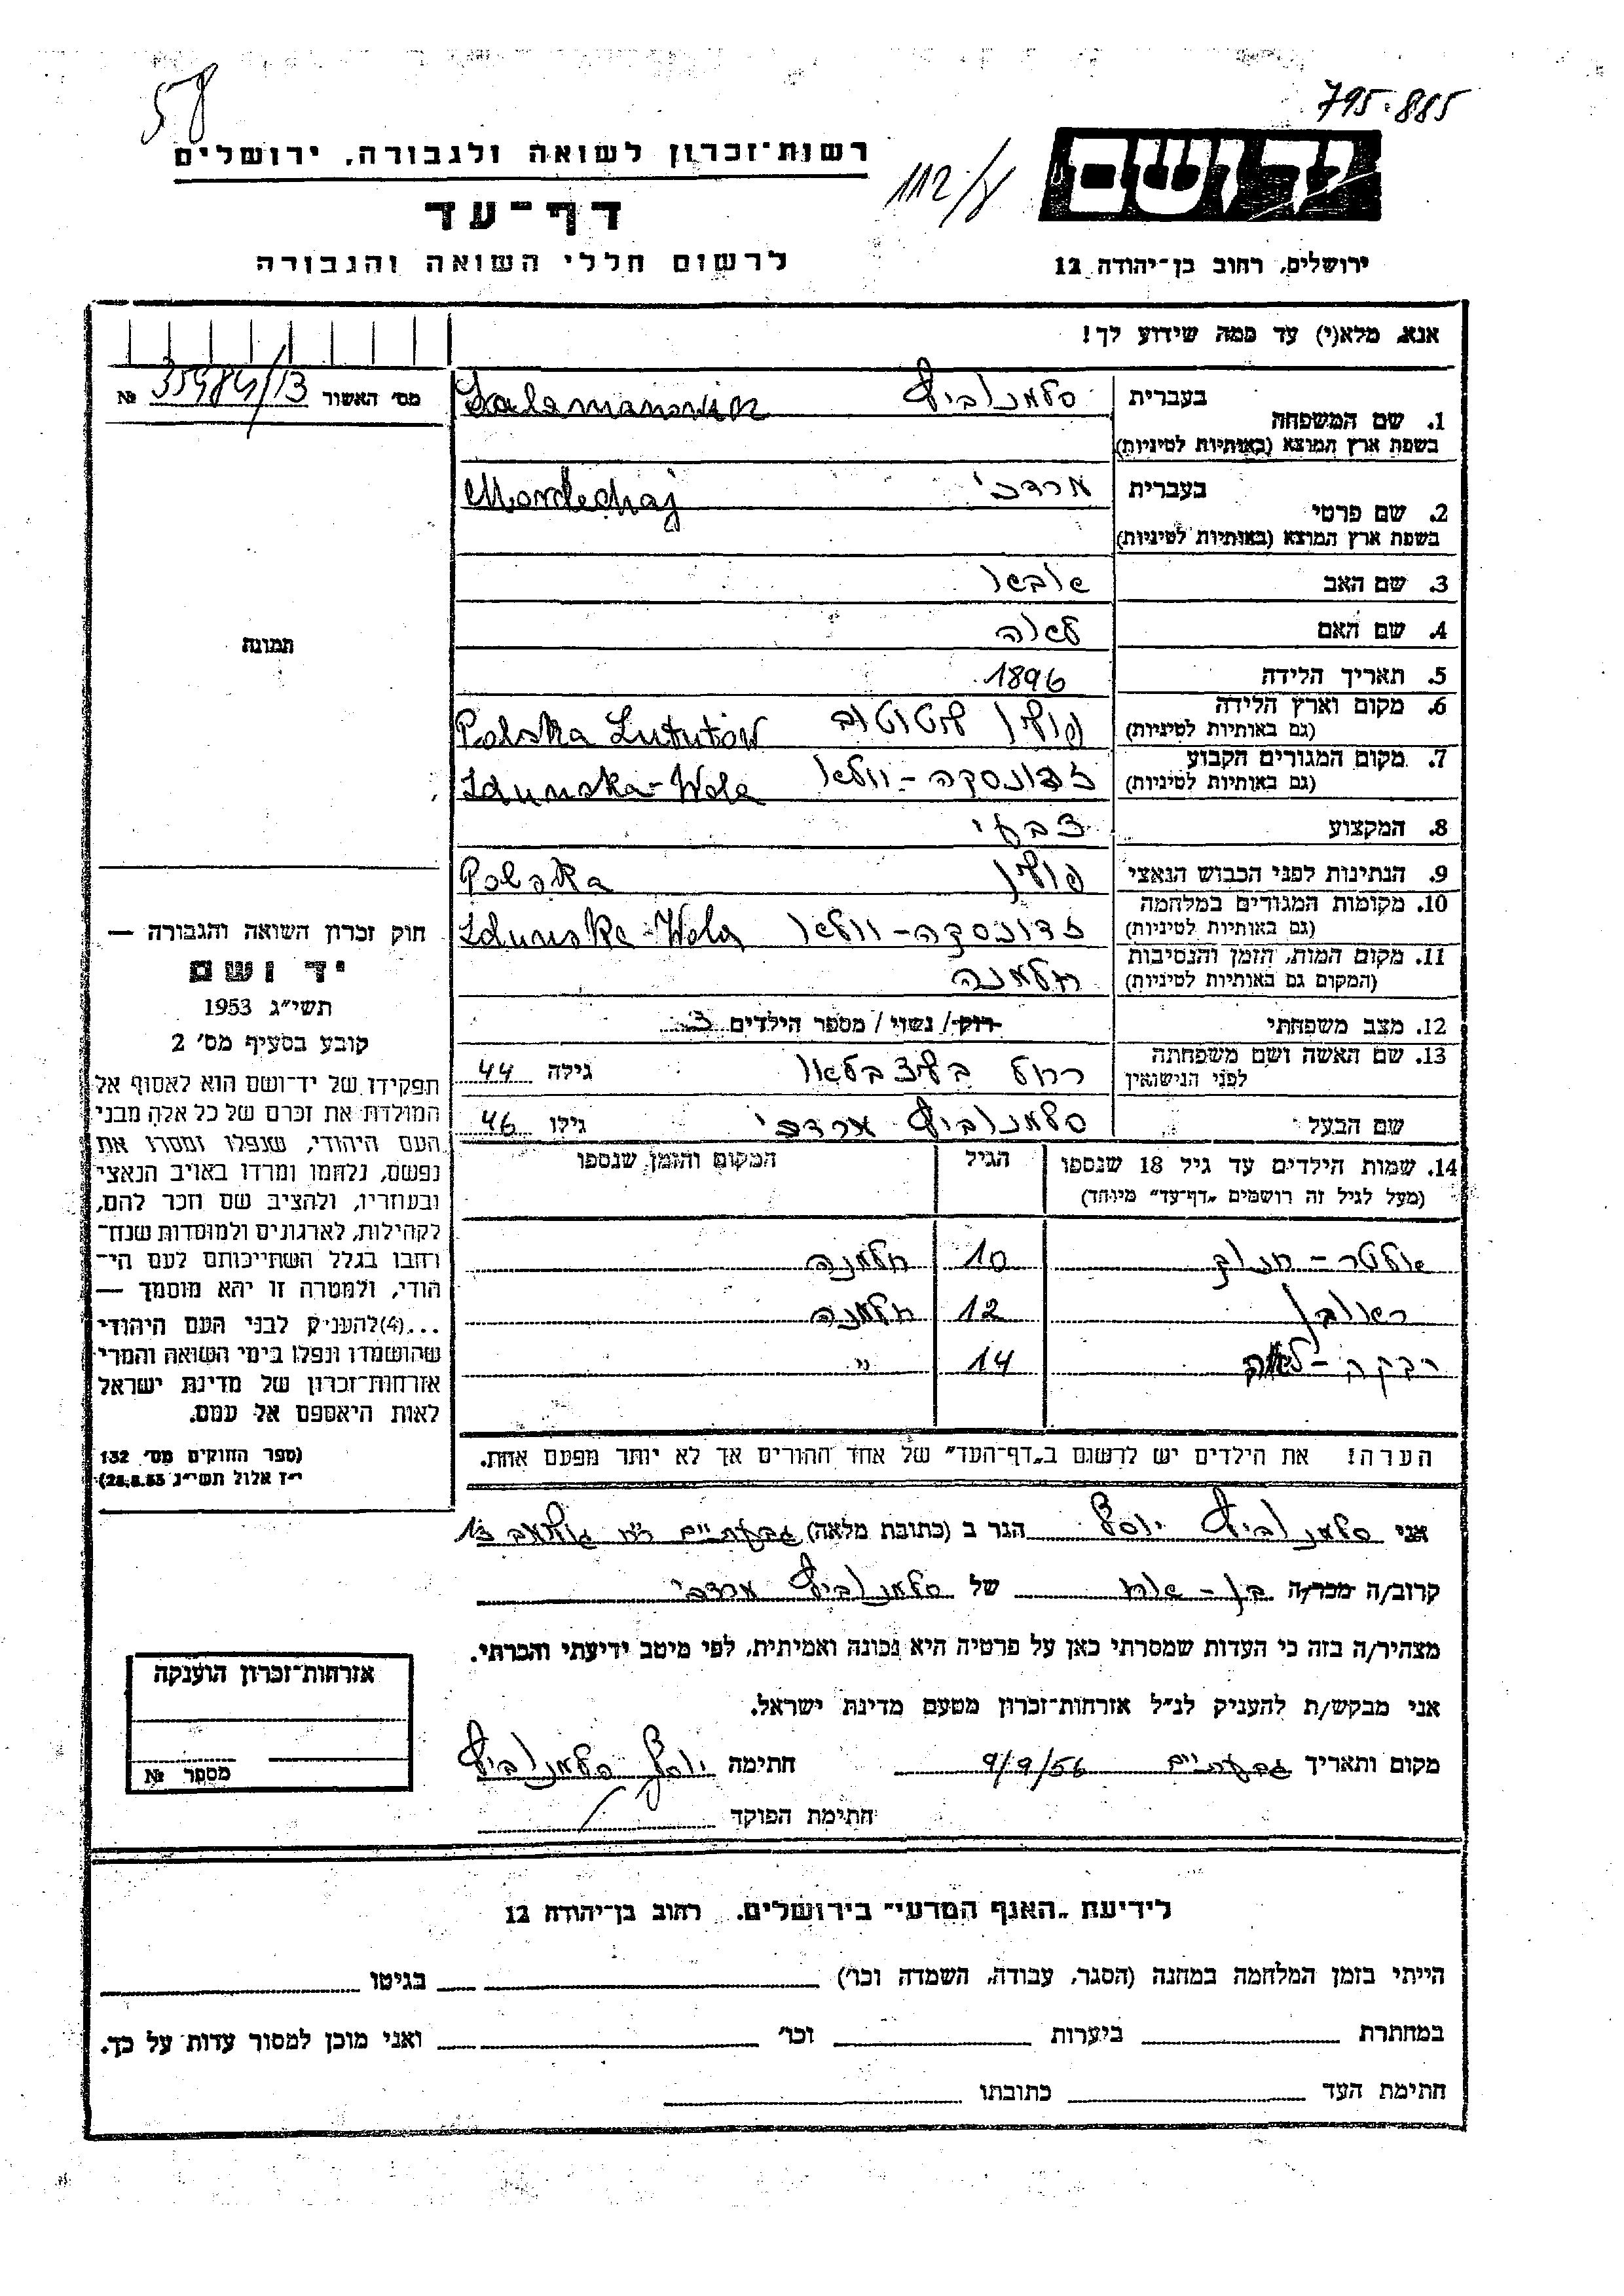 58
795-885
רשות־זכרון לשואה ולגבורה, ירושלים
112/
יד ושם
דף־עד
לרשום חללי השואה והגבורה
ירושלים, רחוב בן־יהודה 12
אנא, מלא(י) עד כמה שידוע לך!
מס׳ האשור № 35484/13
1. שם המשפחה
בעברית
בשפת ארץ המוצא (באותיות לטיניות)
סלמנוביץ Salamanowicz
2. שם פרטי
בעברית
בשפת ארץ המוצא (באותיות לטיניות)
מרדכי Mordechaj
3. שם האב
4. שם האם לאה
5. תאריך הלידה 1896
6. מקום וארץ הלידה
(גם באותיות לטיניות)
פולין לוטוטוב Polska Lututów
7. מקום המגורים הקבוע
(גם באותיות לטיניות)
זדונסקה-וולא Zdunska-Wola
8. המקצוע צבעי
9. הנתינות לפני הכבוש הנאצי פולין Polska
10. מקומות המגורים במלחמה
(גם באותיות לטיניות)
זדונסקה-וולא Zdunska-Wola
11. מקום המות, הזמן והנסיבות
(המקום גם באותיות לטיניות)
חלמנה
12. מצב משפחתי רוק/ נשוי/ מספר הילדים 3
13. שם האשה ושם משפחתה
לפני הנישואין
רחל גילה 44
שם הבעל סלמנוביץ מרדכי גילו 46
14. שמות הילדים עד גיל 18 שנספו
(מעל לגיל זה רושמים „דף־עד” מיוחד)
הגיל
המקום והזמן שנספו
אלטר - חנוך 10 חלמנה
ראובן 12 חלמנה
רבקה - לאה 14 ״
הערה! את הילדים יש לרשום ב„דף־העד” של אחד ההורים אך לא יותר מפעם אחת.
תמונה
חוק זכרון השואה והגבורה —
יד ושם
תשי״ג 1953
קובע בסעיף מס׳ 2
תפקידו של יד־ושם הוא לאסוף אל
המולדת את זכרם של כל אלה מבני
העם היהודי, שנפלו ומסרו את
נפשם, נלחמו ומרדו באויב הנאצי
ובעוזריו, ולהציב שם וזכר להם,
לקהילות, לארגונים ולמוסדות שנח־
רבו בגלל השתייכותם לעם הי־
הודי, ולמטרה זו יהא מוסמך —
...(4)להעניק לבני העם היהודי
שהושמדו ונפלו בימי השואה והמרי
אזרחות־זכרון של מדינת ישראל
לאות היאספם אל עמם.
(ספר החוקים מס׳ 132
י״ז אלול תשי״ג 28.8.53)
אני סלמנוביץ יוסף הגר ב (כתובת מלאה) גבעתיים רח׳ 13
קרוב/ה מכר/ה בן - אח של סלמנוביץ מרדכי
מצהיר/ה בזה כי העדות שמסרתי כאן על פרטיה היא נכונה ואמיתית, לפי מיטב ידיעתי והכרתי.
אני מבקש/ת להעניק לנ״ל אזרחות־זכרון מטעם מדינת ישראל.
מקום ותאריך גבעתיים 9/9/56 חתימה יוסף סלמנוביץ
חתימת הפוקד
אזרחות־זכרון הוענקה
מספר №
לידיעת „האגף המדעי” בירושלים. רחוב בן־יהודה 12
הייתי בזמן המלחמה במחנה (הסגר, עבודה, השמדה וכו׳) בגיטו
במחתרת ביערות וכו׳ ואני מוכן למסור עדות על כך.
חתימת העד כתובתו